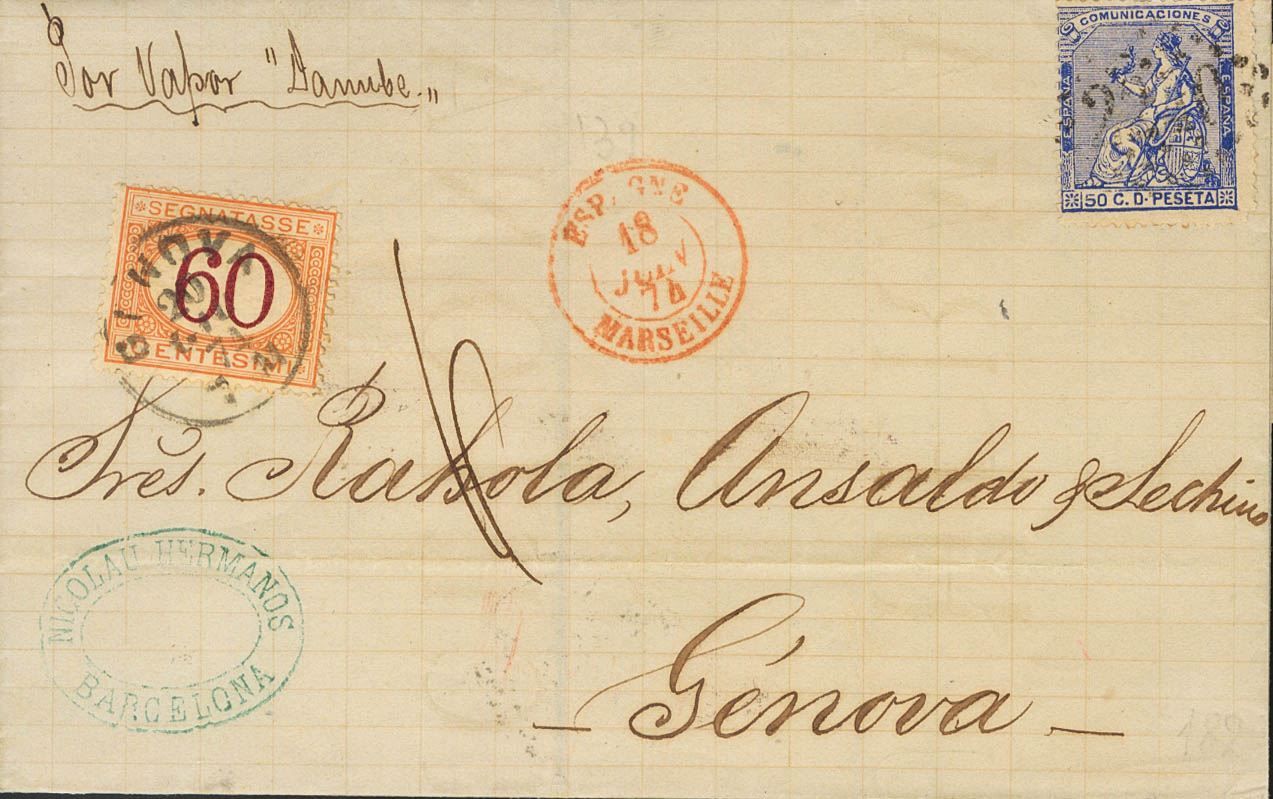 Por Vapor "Danube."
COMUNICACIONES
ESPAÑA
ESPAÑA
50 C. D. PESETA
SEGNATASSE
60
CENTESIMI
GENOVA
20
ESPAGNE
18
JUIN
74
MARSEILLE
Sres. Rabola, Ansaldo & Sechino
NICOLAU HERMANOS
BARCELONA
- Génova -